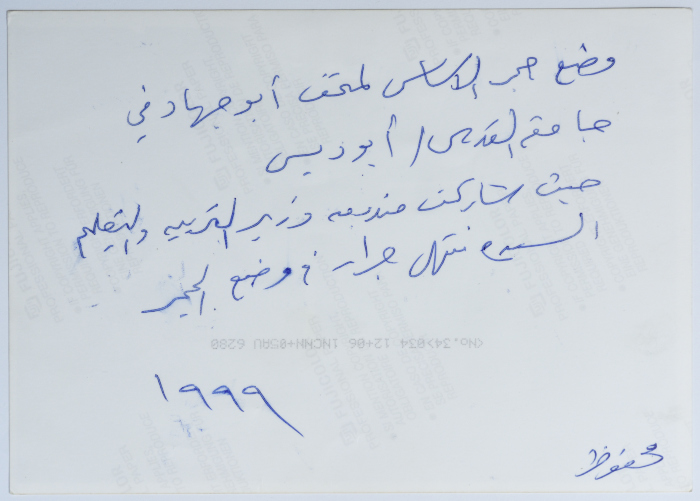 وضع حجر الاساس لمتحف أبو جهاد في
جامعة القدس / أبو ديس
حيث شاركت مندوبه وزير التربيه والتعليم
السيده نتهل جرار في وضع الحجر
<No.34>034 12+06 1NCNN+05AU 6280
١٩٩٩
محفوظ